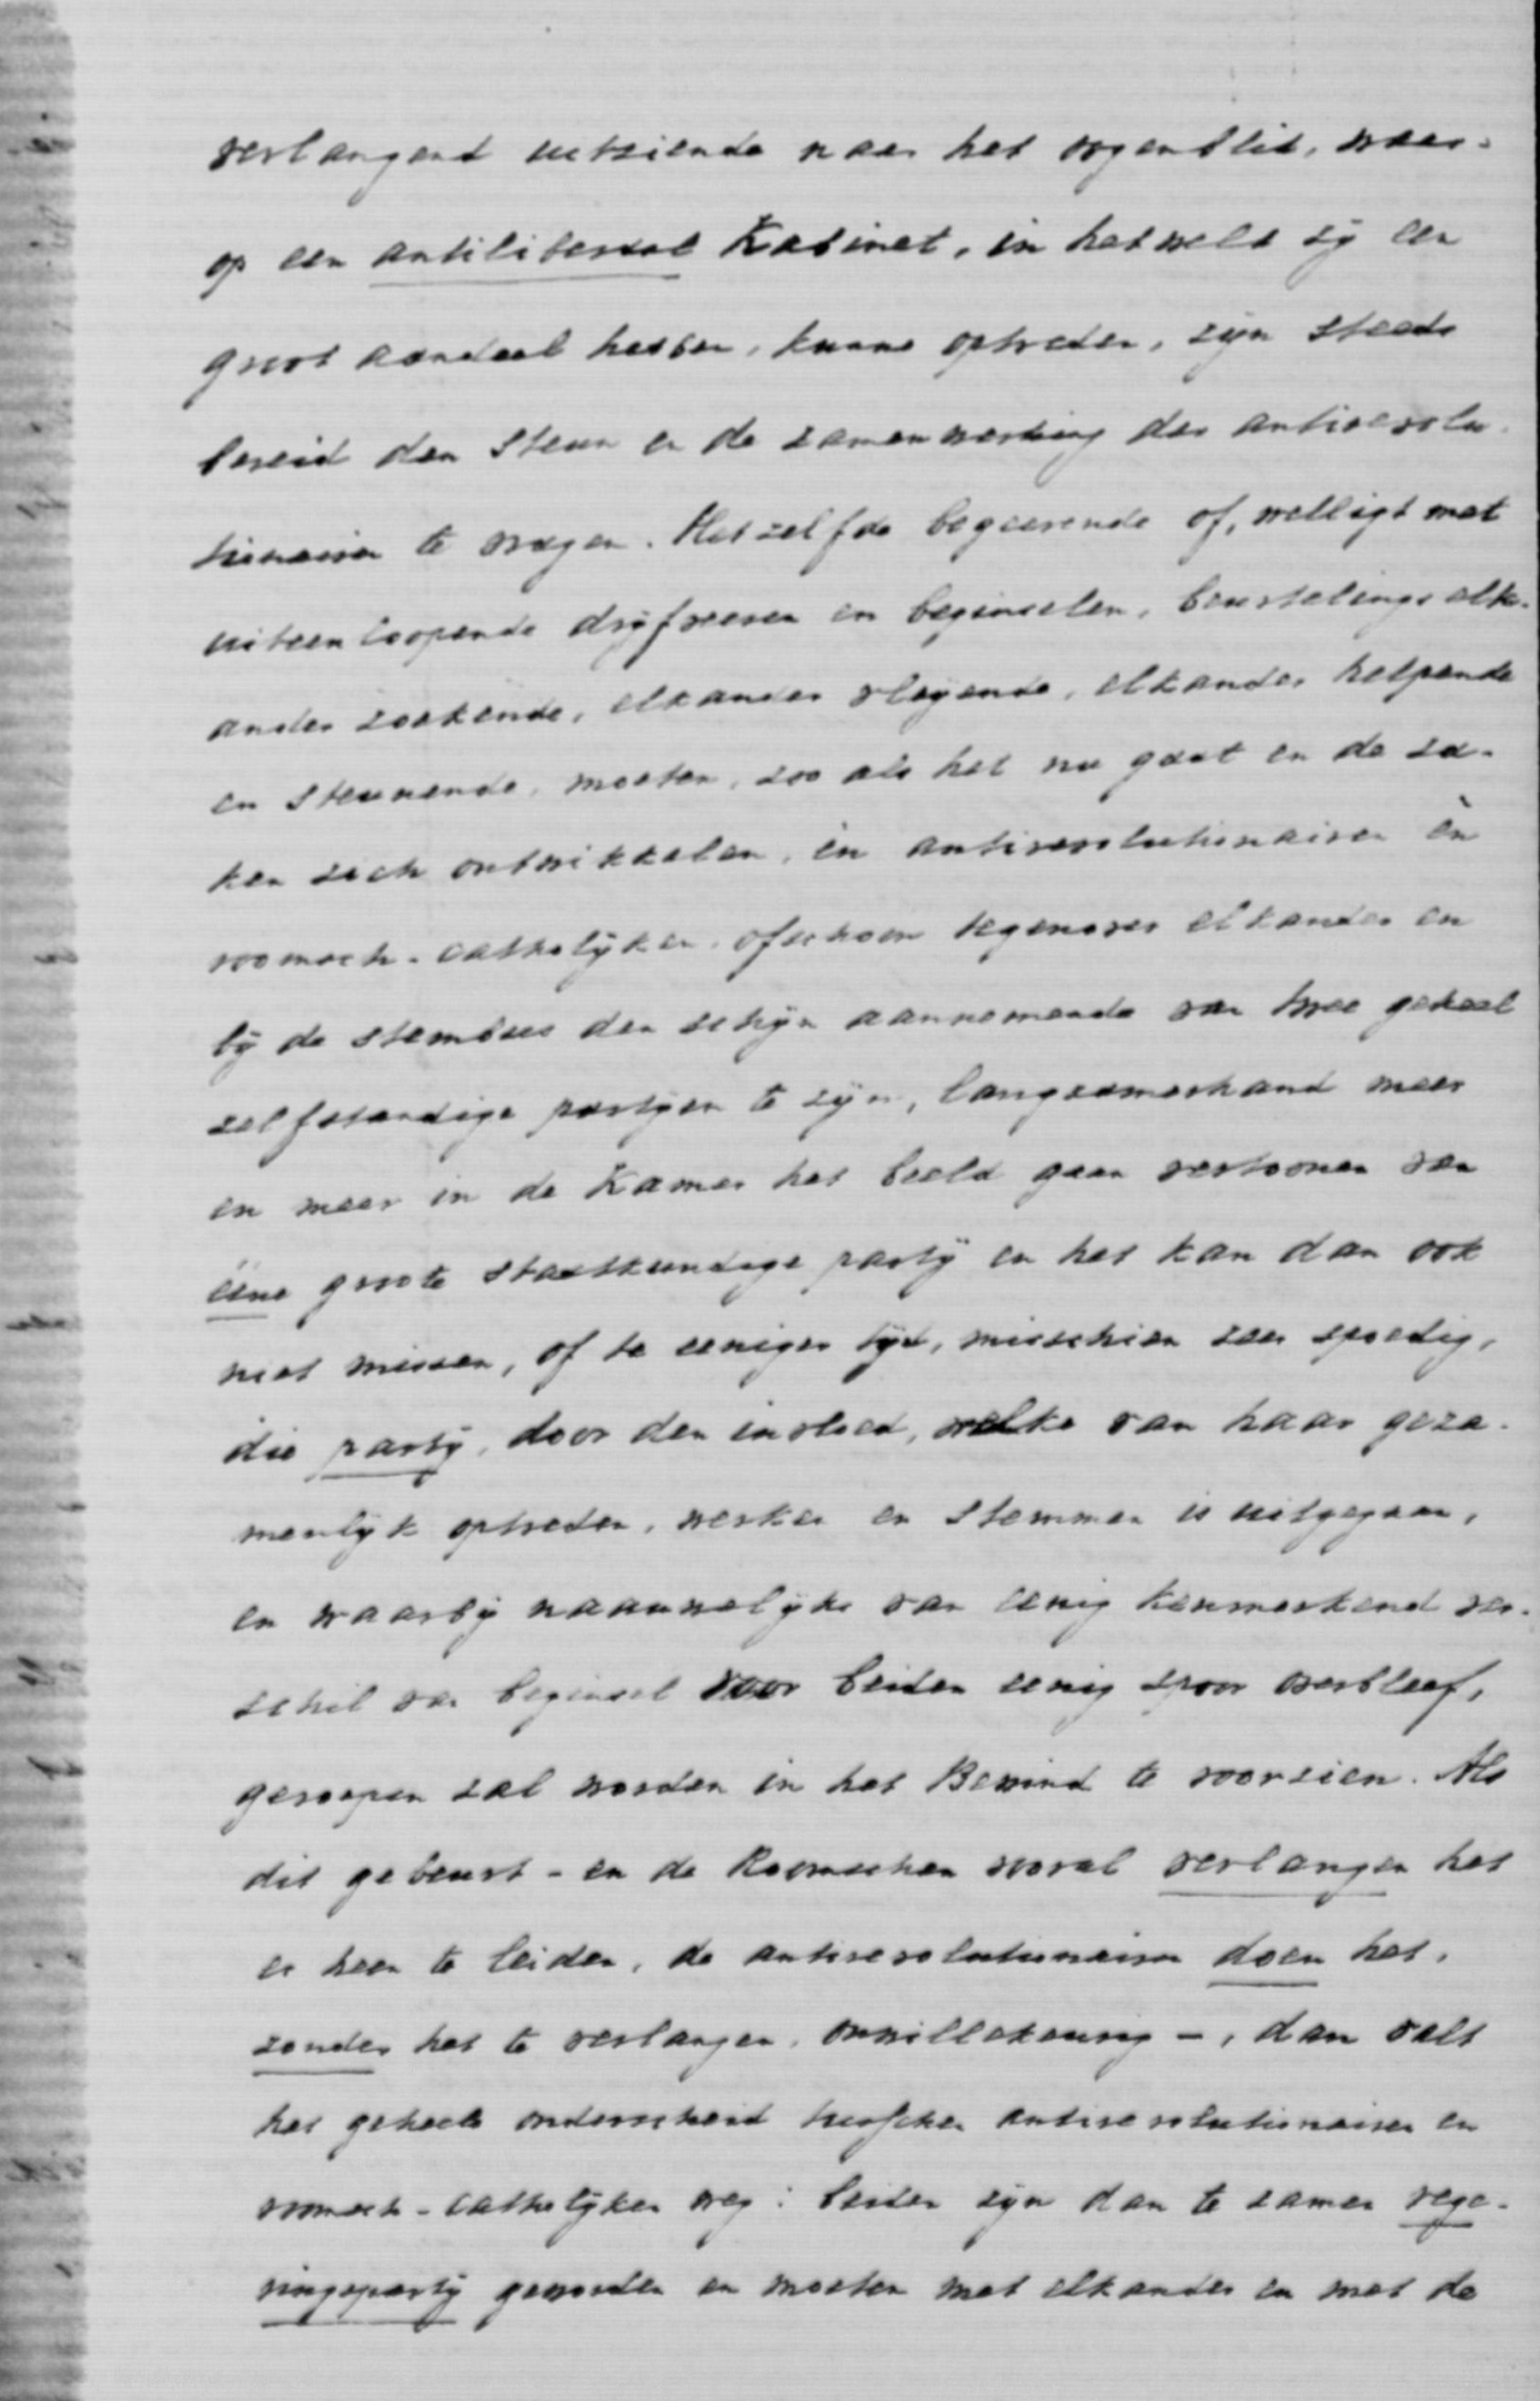 verlangend uitziende naar het oogenblik, waar-
op een antiliberaal Kabinet, in hetwelk zij een
groot aandeel hebben, kunne optreden, zijn steeds
bereid den steun en de zamenwerking der antirevolu-
tionairen te vragen. Hetzelfde begeerende of, welligt met
uiteenloopende drijfveeren en beginselen, beurtelings elk-
ander zoekende, elkander vleijende, elkander helpende
en steunende, moeten, zoo als het nu gaat en de za-
ken zich ontwikkelen, èn antirevolutionairen èn
roomsch-catholijken, ofschoon tegenover elkander en
bij de stembus den schijn aannemende van twee geheel
zelfstandige partijen te zijn, langzamerhand meer
en meer in de Kamer het beeld gaan vertoonen van
ééne groote staatkundige partij en het kan dan ook
niet missen, of te eeniger tijd, misschien zeer spoedig,
die partij, door den invloed, welke van haar geza-
menlijk optreden, werken en stemmen is uitgegaan,
en waarbij naauwelijks van eenig kenmerkend ver-
schil van beginsel voor beiden eenig spoor overbleef,
geroepen zal worden in het Bewind te voorzien. Als
dit gebeurt - en de Roomschen vooral verlangen het
er heen te leiden, de antirevolutionairen doen het,
zonder het te verlangen, onwillekeurig -, dan valt
het geheele onderscheid tusschen antirevolutionairen en
roomsch-catholijken weg: beiden zijn dan te zamen rege-
ringspartij geworden en moeten met elkander en met de